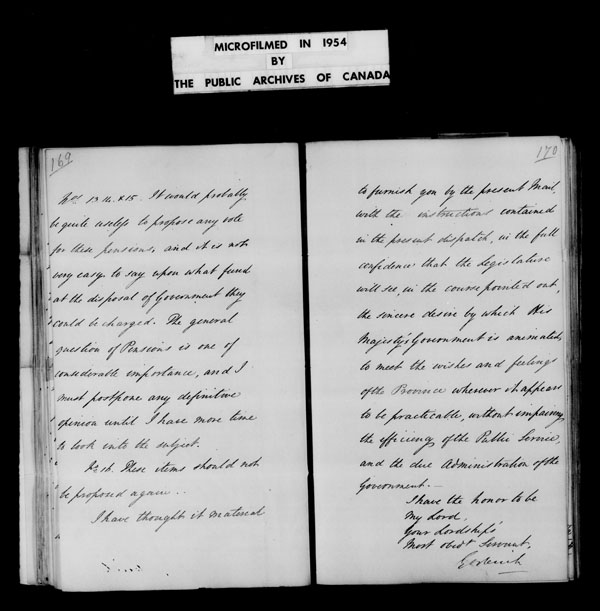 MICROFILMED IN 1954
BY
THE PUBLIC ARCHIVES OF CANADA
169
Nos. 13. 14. & 15. It would probably
be quite useless to propose any vote
for these pensions, and it is not
very easy to say upon what fund
at the disposal of Government they
could be charged. The general
question of Pensions is one of
considerable importance, and I
must postpone any definitive
opinion until I have more time
to look into the subject.
No. 16. These items should not
be proposed again.
I have thought it material
170
to furnish you by the present Mail,
with the instructions contained
in the present dispatch, in the full
confidence that the Legislature
will see, in the course pointed out,
the sincere desire by which His
Majesty's Government is animated,
to meet the wishes and feelings
of the Province wherever it appears
to be practicable, without impairing
the efficiency of the Public Service,
and the due Administration of the
Government.—
I have the honor to be
My Lord,
Your Lordship's
Most obedt. Servant,
Goderich